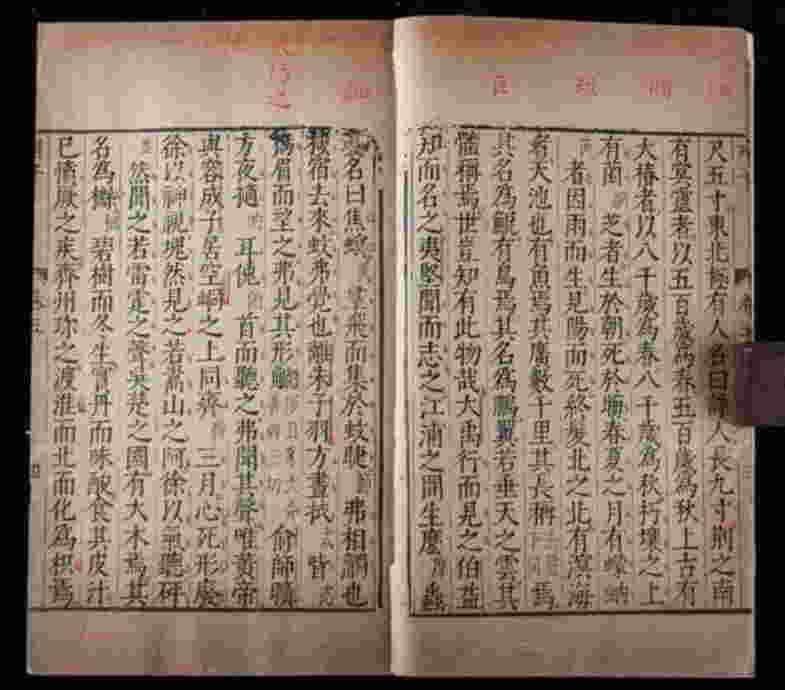 尺五寸東北極有人名曰諍人長九寸荆之南
有冥靈者以五百歲為春五百歲為秋上古有
大椿者以八千歲為春八千歲為秋朽壤之上
有菌芝者生於朝死於晦春夏之月有蠓蚋
者因雨而生見陽而死終髮北之北有溟海
者天池也有魚焉其廣數千里其長稱焉
其名為鯤有鳥焉其名為鵬翼若垂天之雲其
體稱焉世豈知有此物哉大禹行而見之伯益
知而名之夷堅聞而志之江浦之間生麽蟲
其名曰焦螟羣飛而集於蚊睫弗相觸也
栖宿去來蚊弗覺也離朱子羽方晝拭眥
揚眉而望之弗見其形䚦俞師曠
方夜擿耳俛首而聽之弗聞其聲唯黄帝
與容成子居空峒之上同齊三月心死形廢
徐以神視塊然見之若嵩山之阿徐以氣聽砰
然聞之若雷霆之聲吳楚之國有大木焉其
名為櫾碧樹而冬生實丹而味酸食其皮汁
已憤厥之疾齊州珍之渡淮而北而化為枳焉